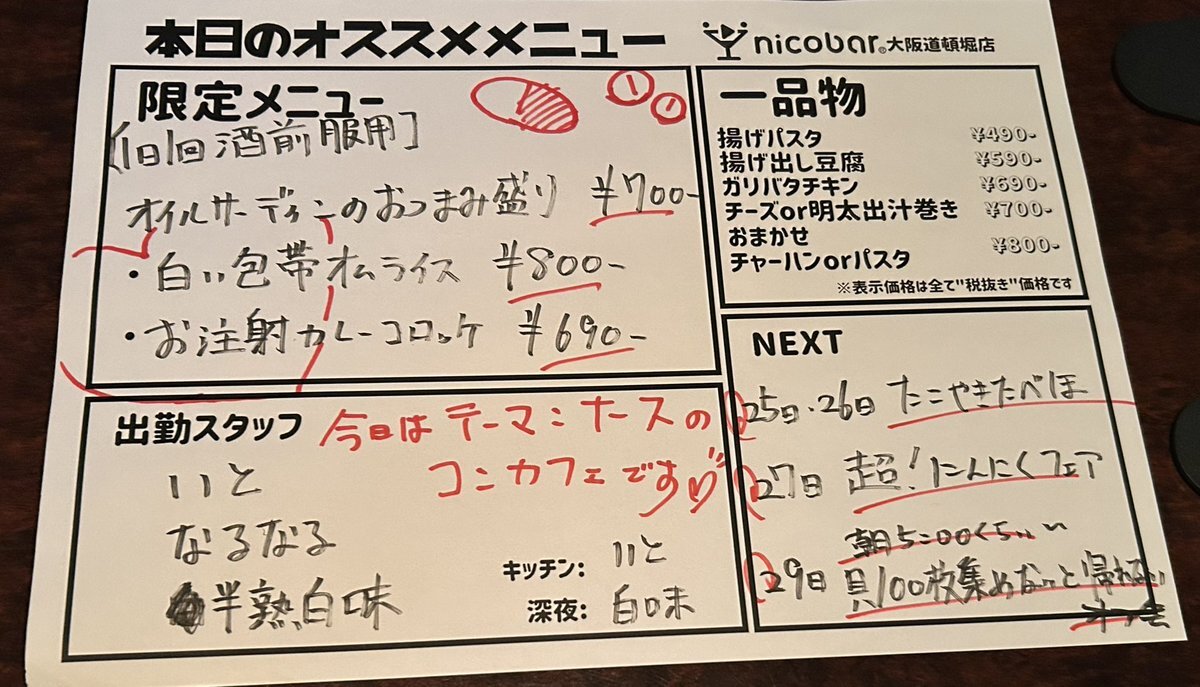 本日のオススメメニュー
nicobar®大阪道頓堀店
限定メニュー
[1日1回酒前服用]
オイルサーディンのおつまみ盛り ¥700-
・白い包帯オムライス ¥800-
・お注射カレーコロッケ ¥690-
一品物
揚げパスタ ¥490-
揚げ出し豆腐 ¥590-
ガリバタチキン ¥690-
チーズor明太出汁巻き ¥700-
おまかせ
チャーハンorパスタ ¥800-
※表示価格は全て"税抜き"価格です
出勤スタッフ
今日はテーマ:ナースの
コンカフェです
いと
なるなる
半熟白味
キッチン: いと
深夜: 白味
NEXT
25日・26日 たこやきたべほ
27日 超!にんにくフェア
朝5:00くらい〜
29日 貝100枚集めないと帰れない